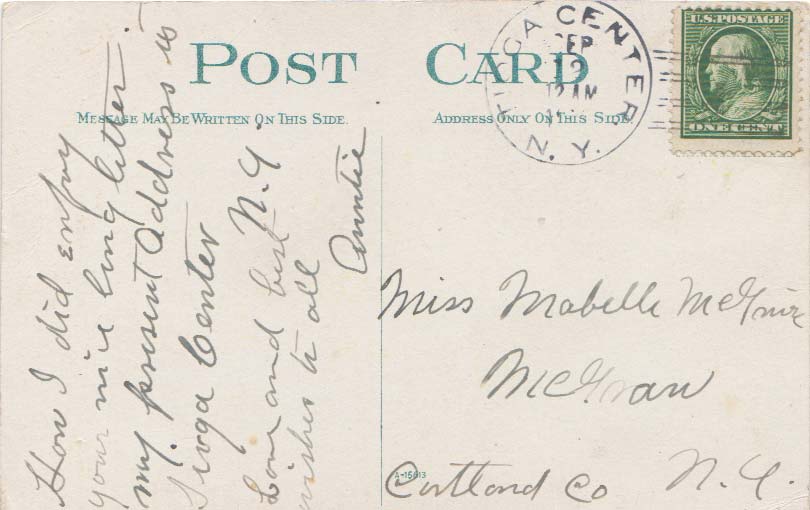 POST CARD
MESSAGE MAY BE WRITTEN ON THIS SIDE.
ADDRESS ONLY ON THIS SIDE.
TIOGA CENTER
SEP
12 AM
N. Y.
U.S. POSTAGE
ONE CENT
How I did enjoy
your nice long letter.
my present Address is
Tioga Center
N.Y.
Love and best
wishes to all
Auntie
Miss Mabelle McGuire
McGraw
Cortland Co N.Y.
A-15613